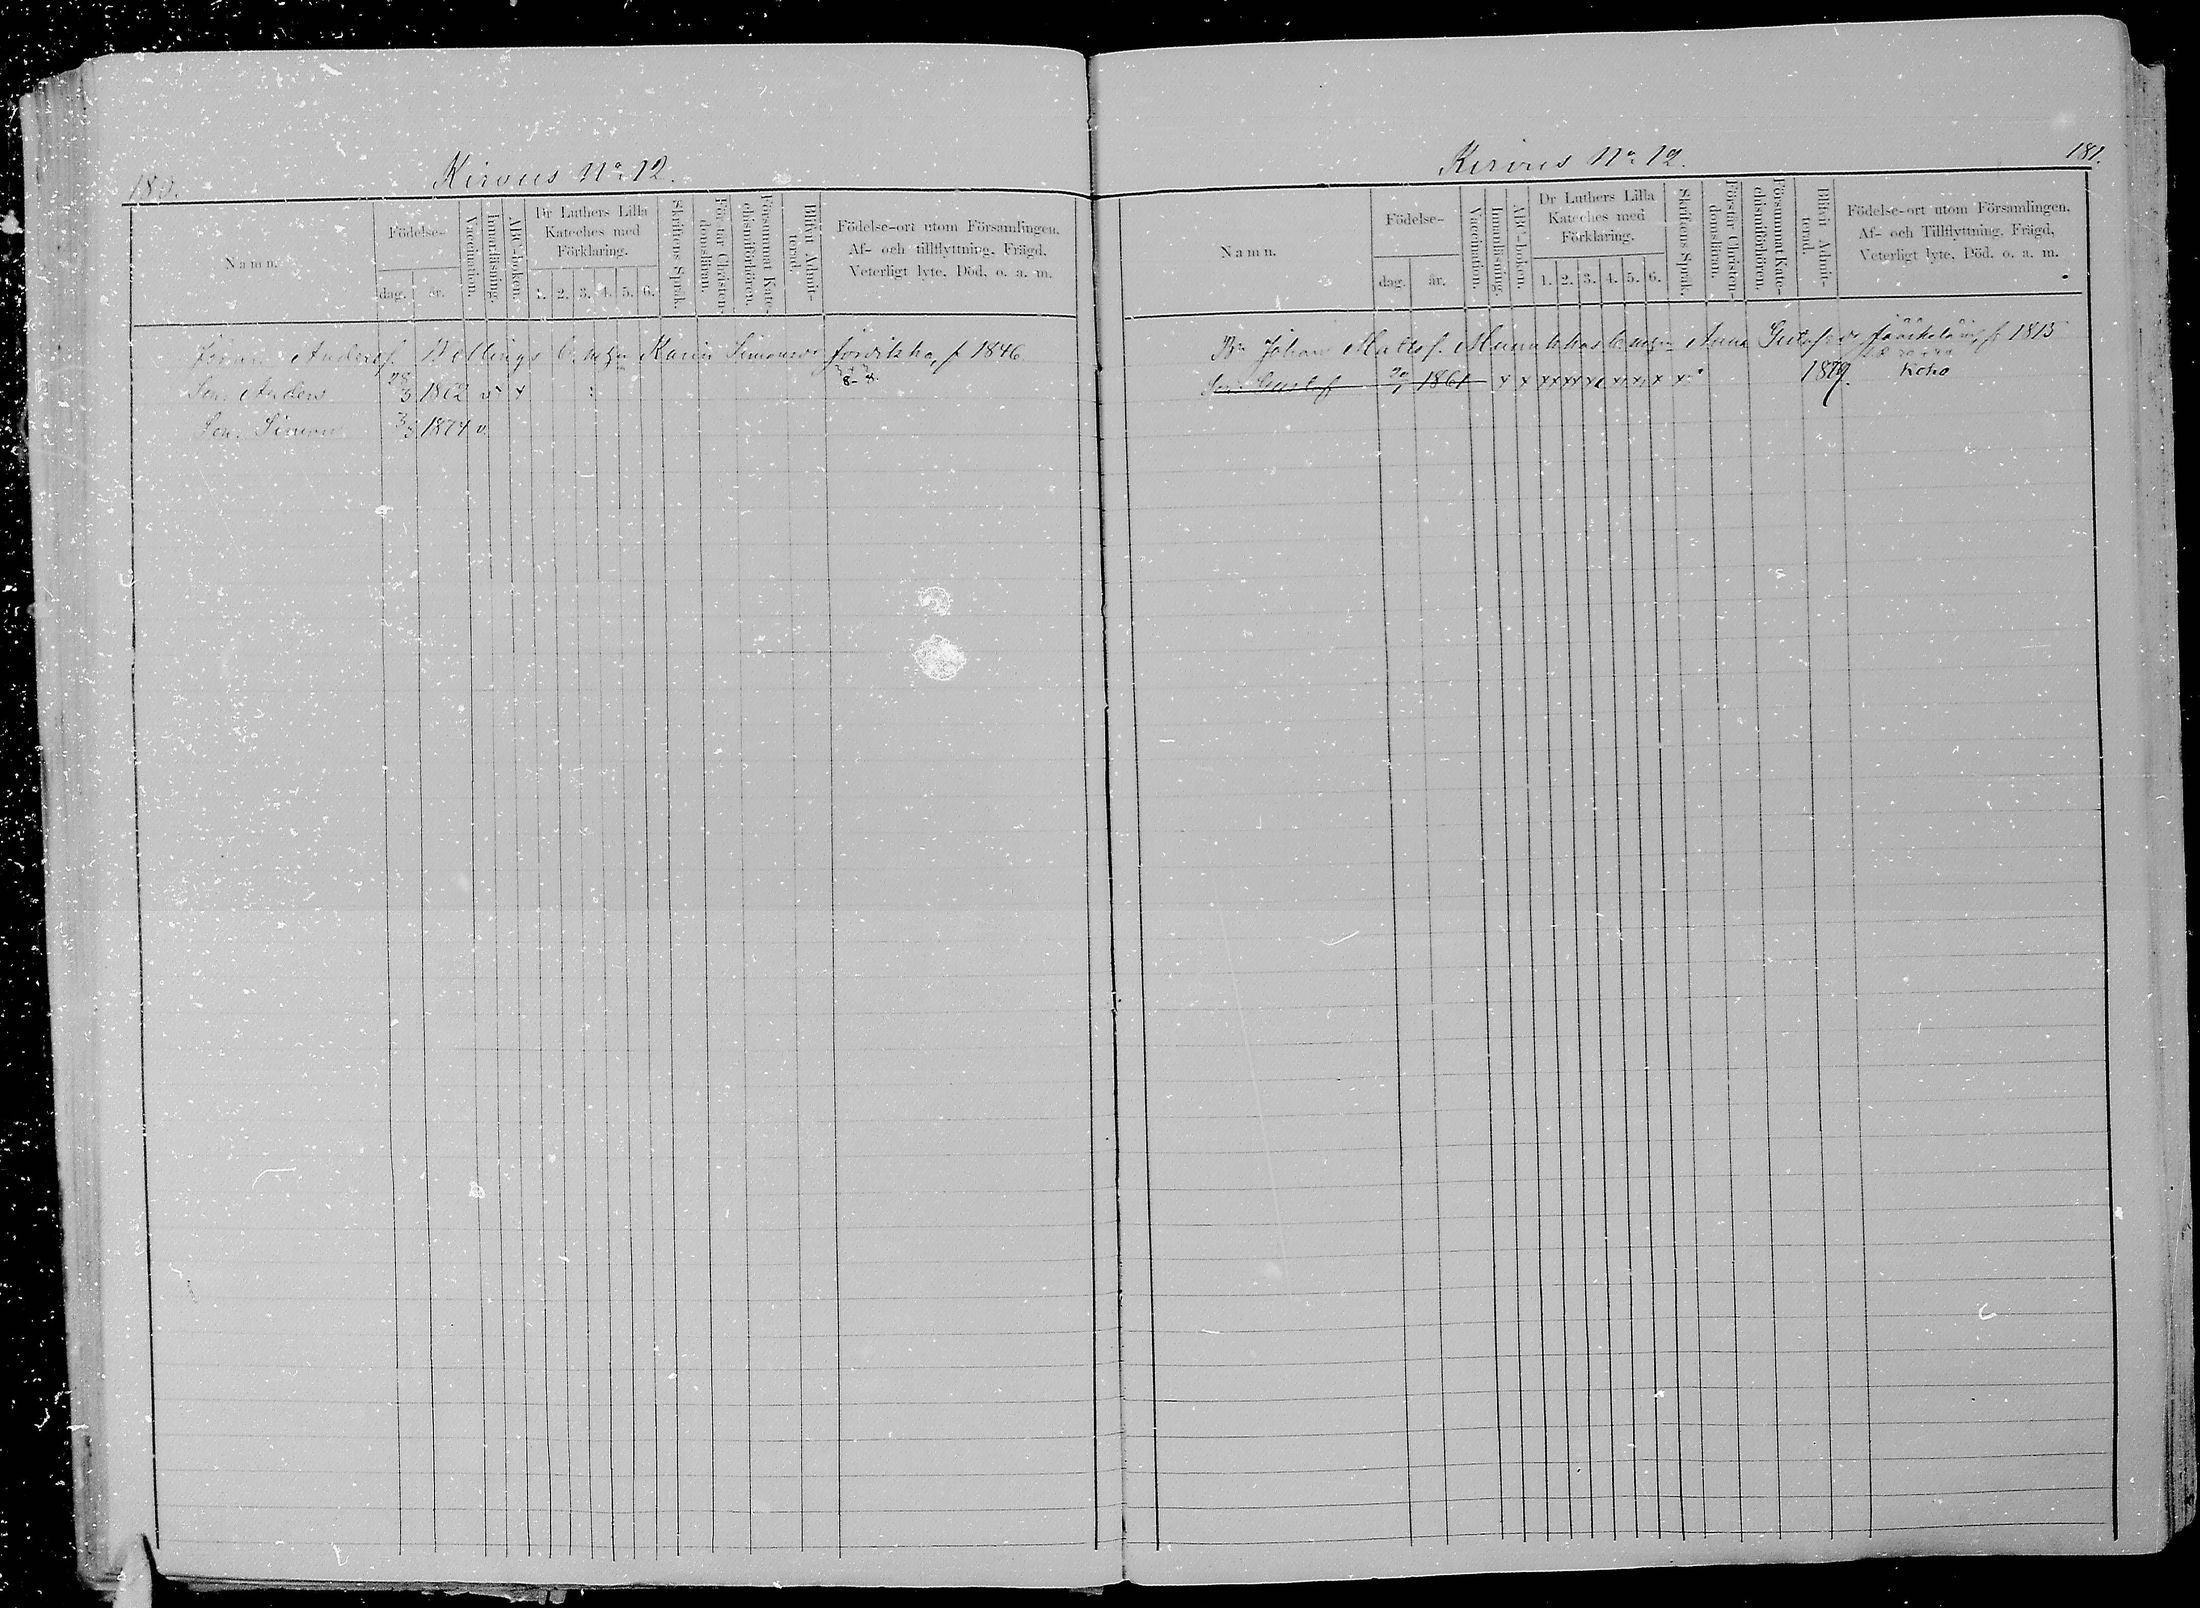 180.
Kirvus No 12.
Namn.
Födelse-
dag.
år.
Vaccination.
Innanläsning.
ABC-boken.
Dr Luthers Lilla
Kateches med
Förklaring.
1. 2. 3. 4. 5. 6.
Skriftens Språk.
Förstår Christen-
domsläran.
Försummat Kate-
chismiförhören.
Blifvit Admit-
terad.
Födelse-ort utom Församlingen.
Af- och tillflyttning. Frägd,
Veterligt lyte. Död. o. a. m.
Anders Karin f 1846
Son. Anders 28/3 1862 v x
Son. Simon 1874 v.
Kirvus No 12.
181.
Namn.
Födelse-
dag.
år.
Vaccination.
Innanläsning.
ABC-boken.
Dr Luthers Lilla
Kateches med
Förklaring.
1. 2. 3. 4. 5. 6.
Skriftens Språk.
Förstår Christen-
domsläran.
Försummat Kate-
chismiförhören.
Blifvit Admit-
terad.
Födelse-ort utom Församlingen.
Af- och Tillflyttning. Frägd,
Veterligt lyte. Död. o. a. m.
Johan Anna f. 1815
Son Gustaf 1861 x x xx xx xx xx xx x 1879.